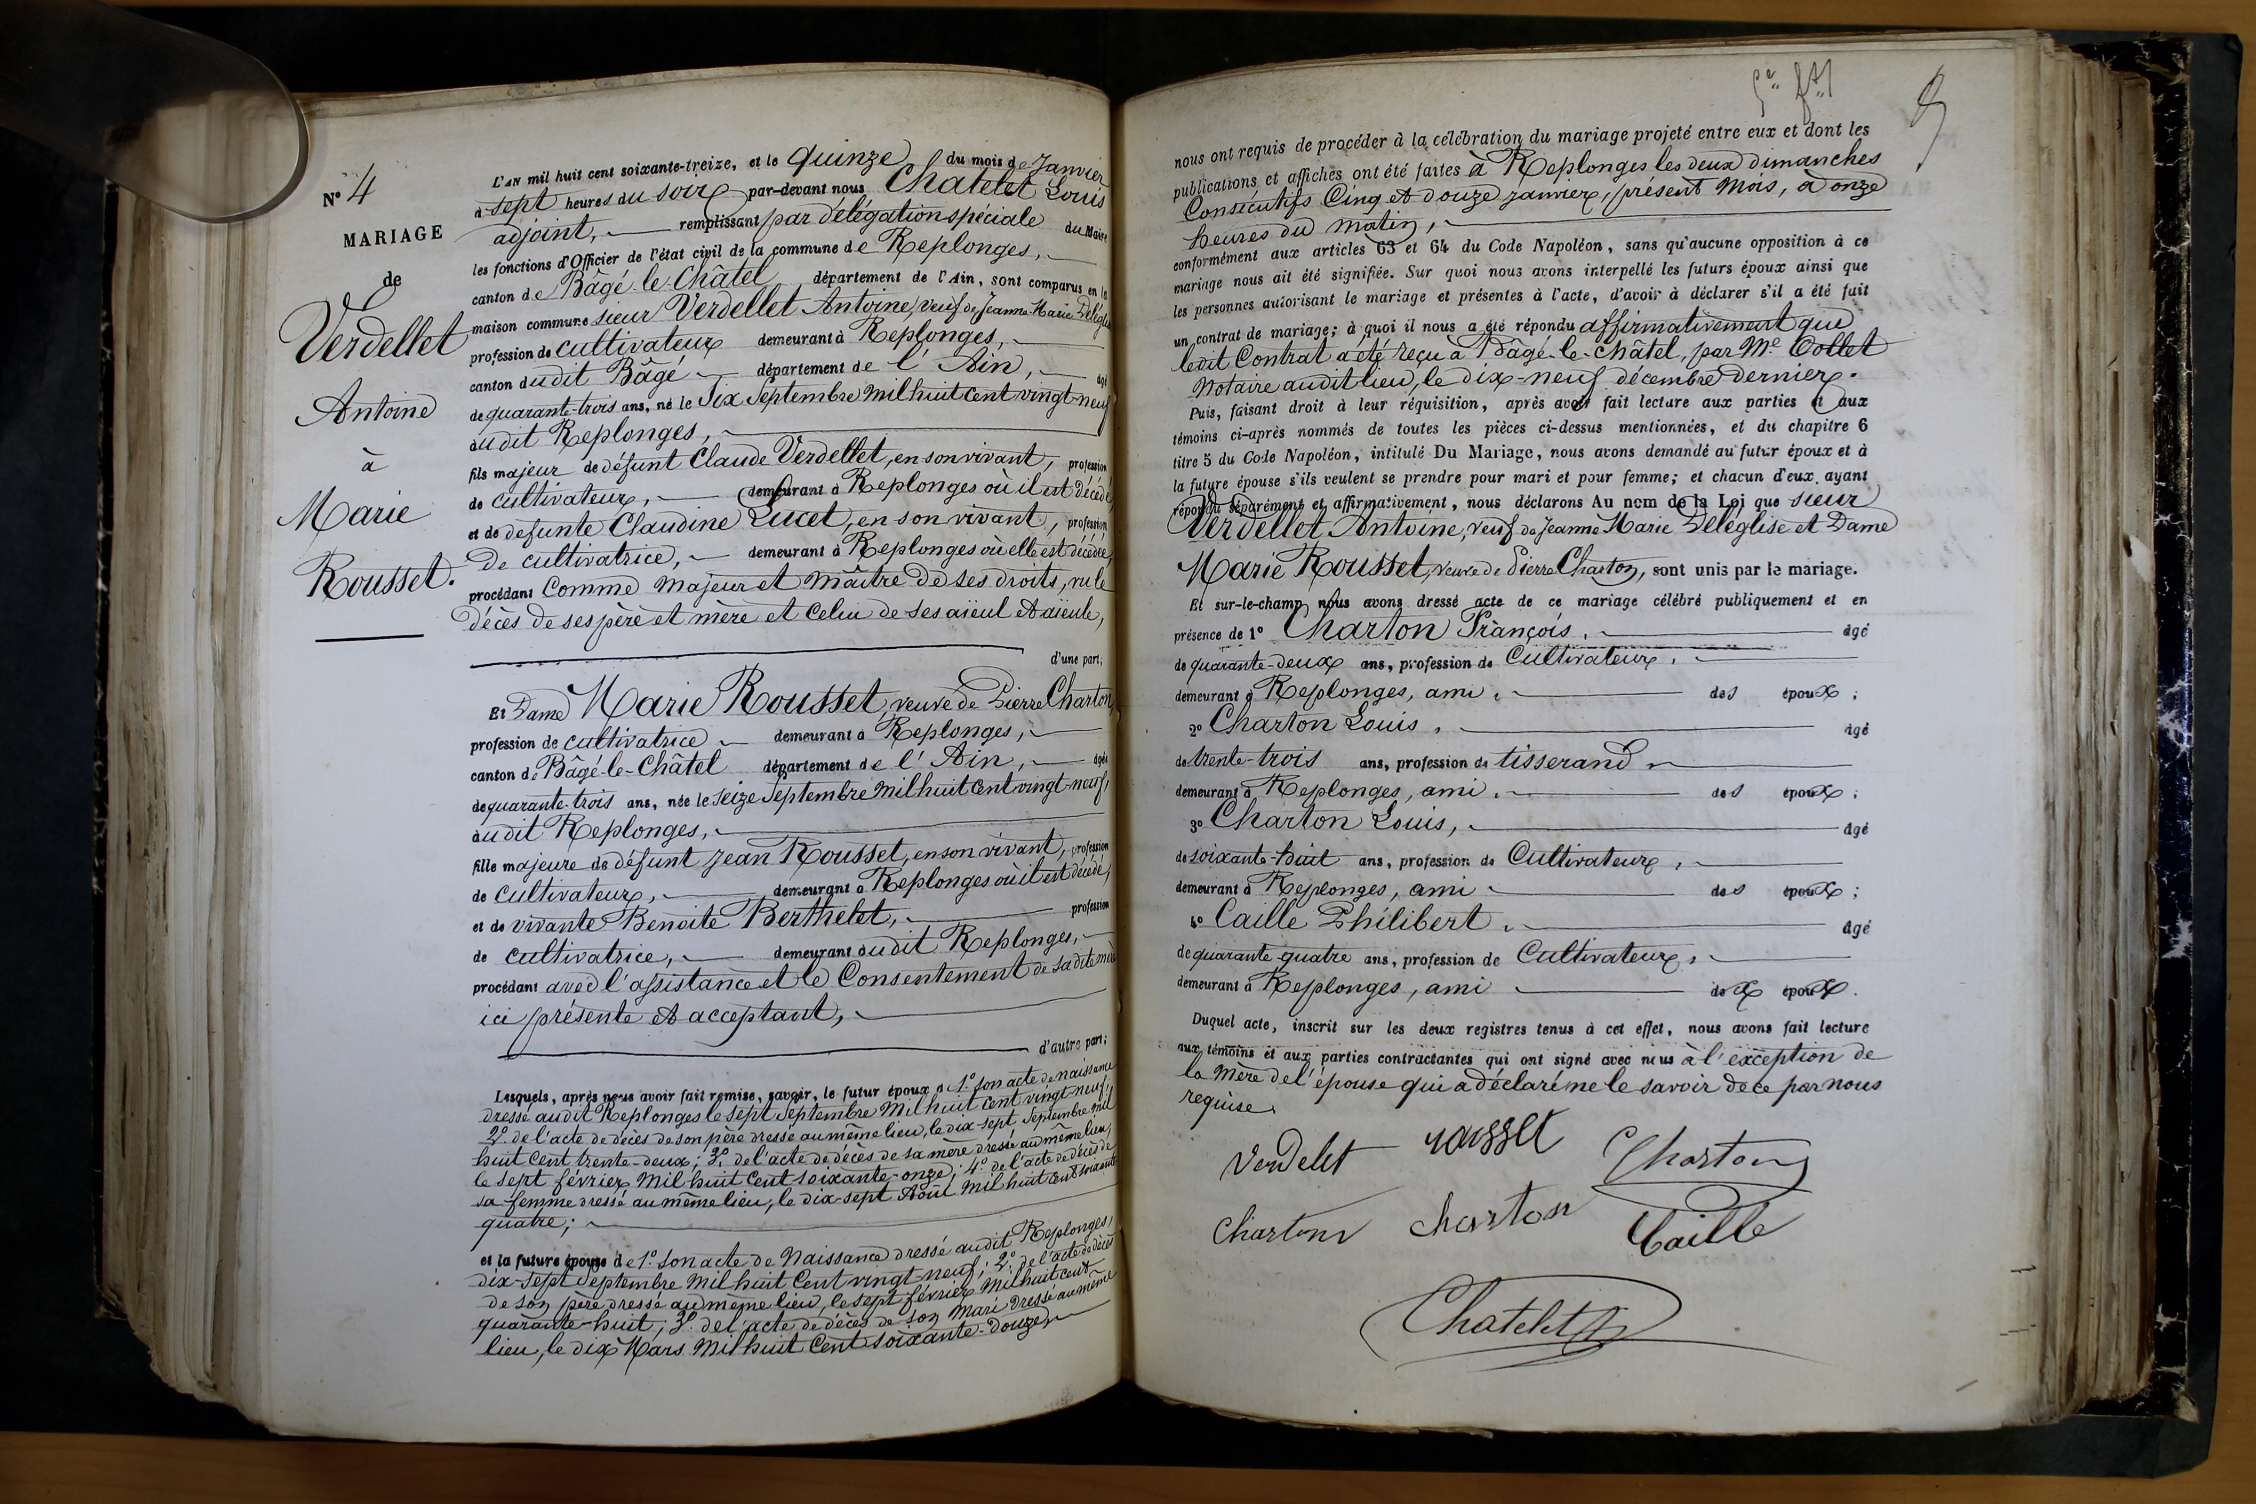 N° 4
MARIAGE
de
Verdellet
Antoine
à
Marie
Rousset.
L'AN mil huit cent soixante-treize, et le quinze du mois de Janvier
à sept heures du soir par-devant nous Chatelet Louis
adjoint, remplissant par délégation spéciale du Maire
les fonctions d'Officier de l'état civil de la commune de Replonges,
canton de Bâgé-le-Châtel département de l'Ain, sont comparus en la
maison commune sieur Verdellet Antoine, veuf de Jeanne Marie Deléglise
profession de cultivateur demeurant à Replonges,
canton dudit Bâgé département de l'Ain, âgé
de quarante-trois ans, né le Six Septembre mil huit cent vingt-neuf
audit Replonges,
fils majeur de défunt Claude Verdellet, en son vivant, profession
de cultivateur, demeurant à Replonges où il est décédé,
et de défunte Claudine Lucet, en son vivant, profession
De cultivatrice, demeurant à Replonges où elle est décédée,
procédant comme majeur et maître de ses droits, vu le
décès de ses père et mère et celui de ses aïeul et aïeule,
d'une part;
Et Dame Marie Rousset, veuve de Pierre Charton,
profession de cultivatrice demeurant à Replonges,
canton de Bâgé-le-Châtel département de l'Ain, âgée
de quarante-trois ans, née le seize Septembre mil huit cent vingt-neuf,
audit Replonges,
fille majeure de défunt Jean Rousset, en son vivant, profession
de cultivateur, demeurant à Replonges où il est décédé,
et de vivante Benoite Berthelet, profession
de cultivatrice, demeurant audit Replonges,
procédant avec l'assistance et le Consentement de sadite mère
ici présente et acceptant,
d'autre part;
Lesquels, après nous avoir fait remise, savoir, le futur époux de 1° son acte de naissance
dressé audit Replonges le sept Septembre mil huit cent vingt-neuf;
2° de l'acte de décès de son père dressé au même lieu, le dix-sept Septembre mil
huit cent trente-deux; 3° de l'acte de décès de sa mère dressé au même lieu,
le sept février mil huit cent soixante-onze; 4° de l'acte de décès de
sa femme dressé au même lieu, le dix-sept Août mil huit cent soixante
quatre;
et la future épouse de 1° son acte de Naissance dressé audit Replonges,
dix-sept Septembre mil huit cent vingt-neuf; 2° de l'acte de décès
de son père dressé au même lieu, le sept février mil huit cent
quarante-huit; 3° de l'acte de décès de son mari dressé au même
lieu, le dix Mars mil huit cent soixante-douze,
nous ont requis de procéder à la célébration du mariage projeté entre eux et dont les
publications et affiches ont été faites à Replonges les deux dimanches
Consécutifs Cinq et douze janvier, présent mois, à onze
heures du matin,
conformément aux articles 63 et 64 du Code Napoléon, sans qu'aucune opposition à ce
mariage nous ait été signifiée. Sur quoi nous avons interpellé les futurs époux ainsi que
les personnes autorisant le mariage et présentes à l'acte, d'avoir à déclarer s'il a été fait
un contrat de mariage; à quoi il nous a été répondu affirmativement que
ledit Contrat a été reçu à Bâgé-le-Châtel, par Me Collet
Notaire audit lieu, le dix-neuf décembre dernier.
Puis, faisant droit à leur réquisition, après avoir fait lecture aux parties et aux
témoins ci-après nommés de toutes les pièces ci-dessus mentionnées, et du chapitre 6
titre 5 du Code Napoléon, intitulé Du Mariage, nous avons demandé au futur époux et à
la future épouse s'ils veulent se prendre pour mari et pour femme; et chacun d'eux ayant
répondu séparément et affirmativement, nous déclarons Au nom de la Loi que sieur
Verdellet Antoine, veuf de Jeanne Marie Deléglise et Dame
Marie Rousset, veuve de Pierre Charton, sont unis par le mariage.
Et sur-le-champ nous avons dressé acte de ce mariage célébré publiquement et en
présence de 1° Charton François, âgé
de quarante-deux ans, profession de Cultivateur,
demeurant à Replonges, ami des époux;
2° Charton Louis, âgé
de trente-trois ans, profession de tisserand
demeurant à Replonges, ami des époux;
3° Charton Louis, âgé
de soixante-huit ans, profession de Cultivateur,
demeurant à Replonges, ami des époux;
4° Caille Philibert, âgé
de quarante-quatre ans, profession de Cultivateur,
demeurant à Replonges, ami des époux.
Duquel acte, inscrit sur les deux registres tenus à cet effet, nous avons fait lecture
aux témoins et aux parties contractantes qui ont signé avec nous à l'exception de
la Mère de l'épouse qui a déclaré ne le savoir de ce par nous
requise.
Verdelet rousset Charton
Charton charton Caille
Chatelet